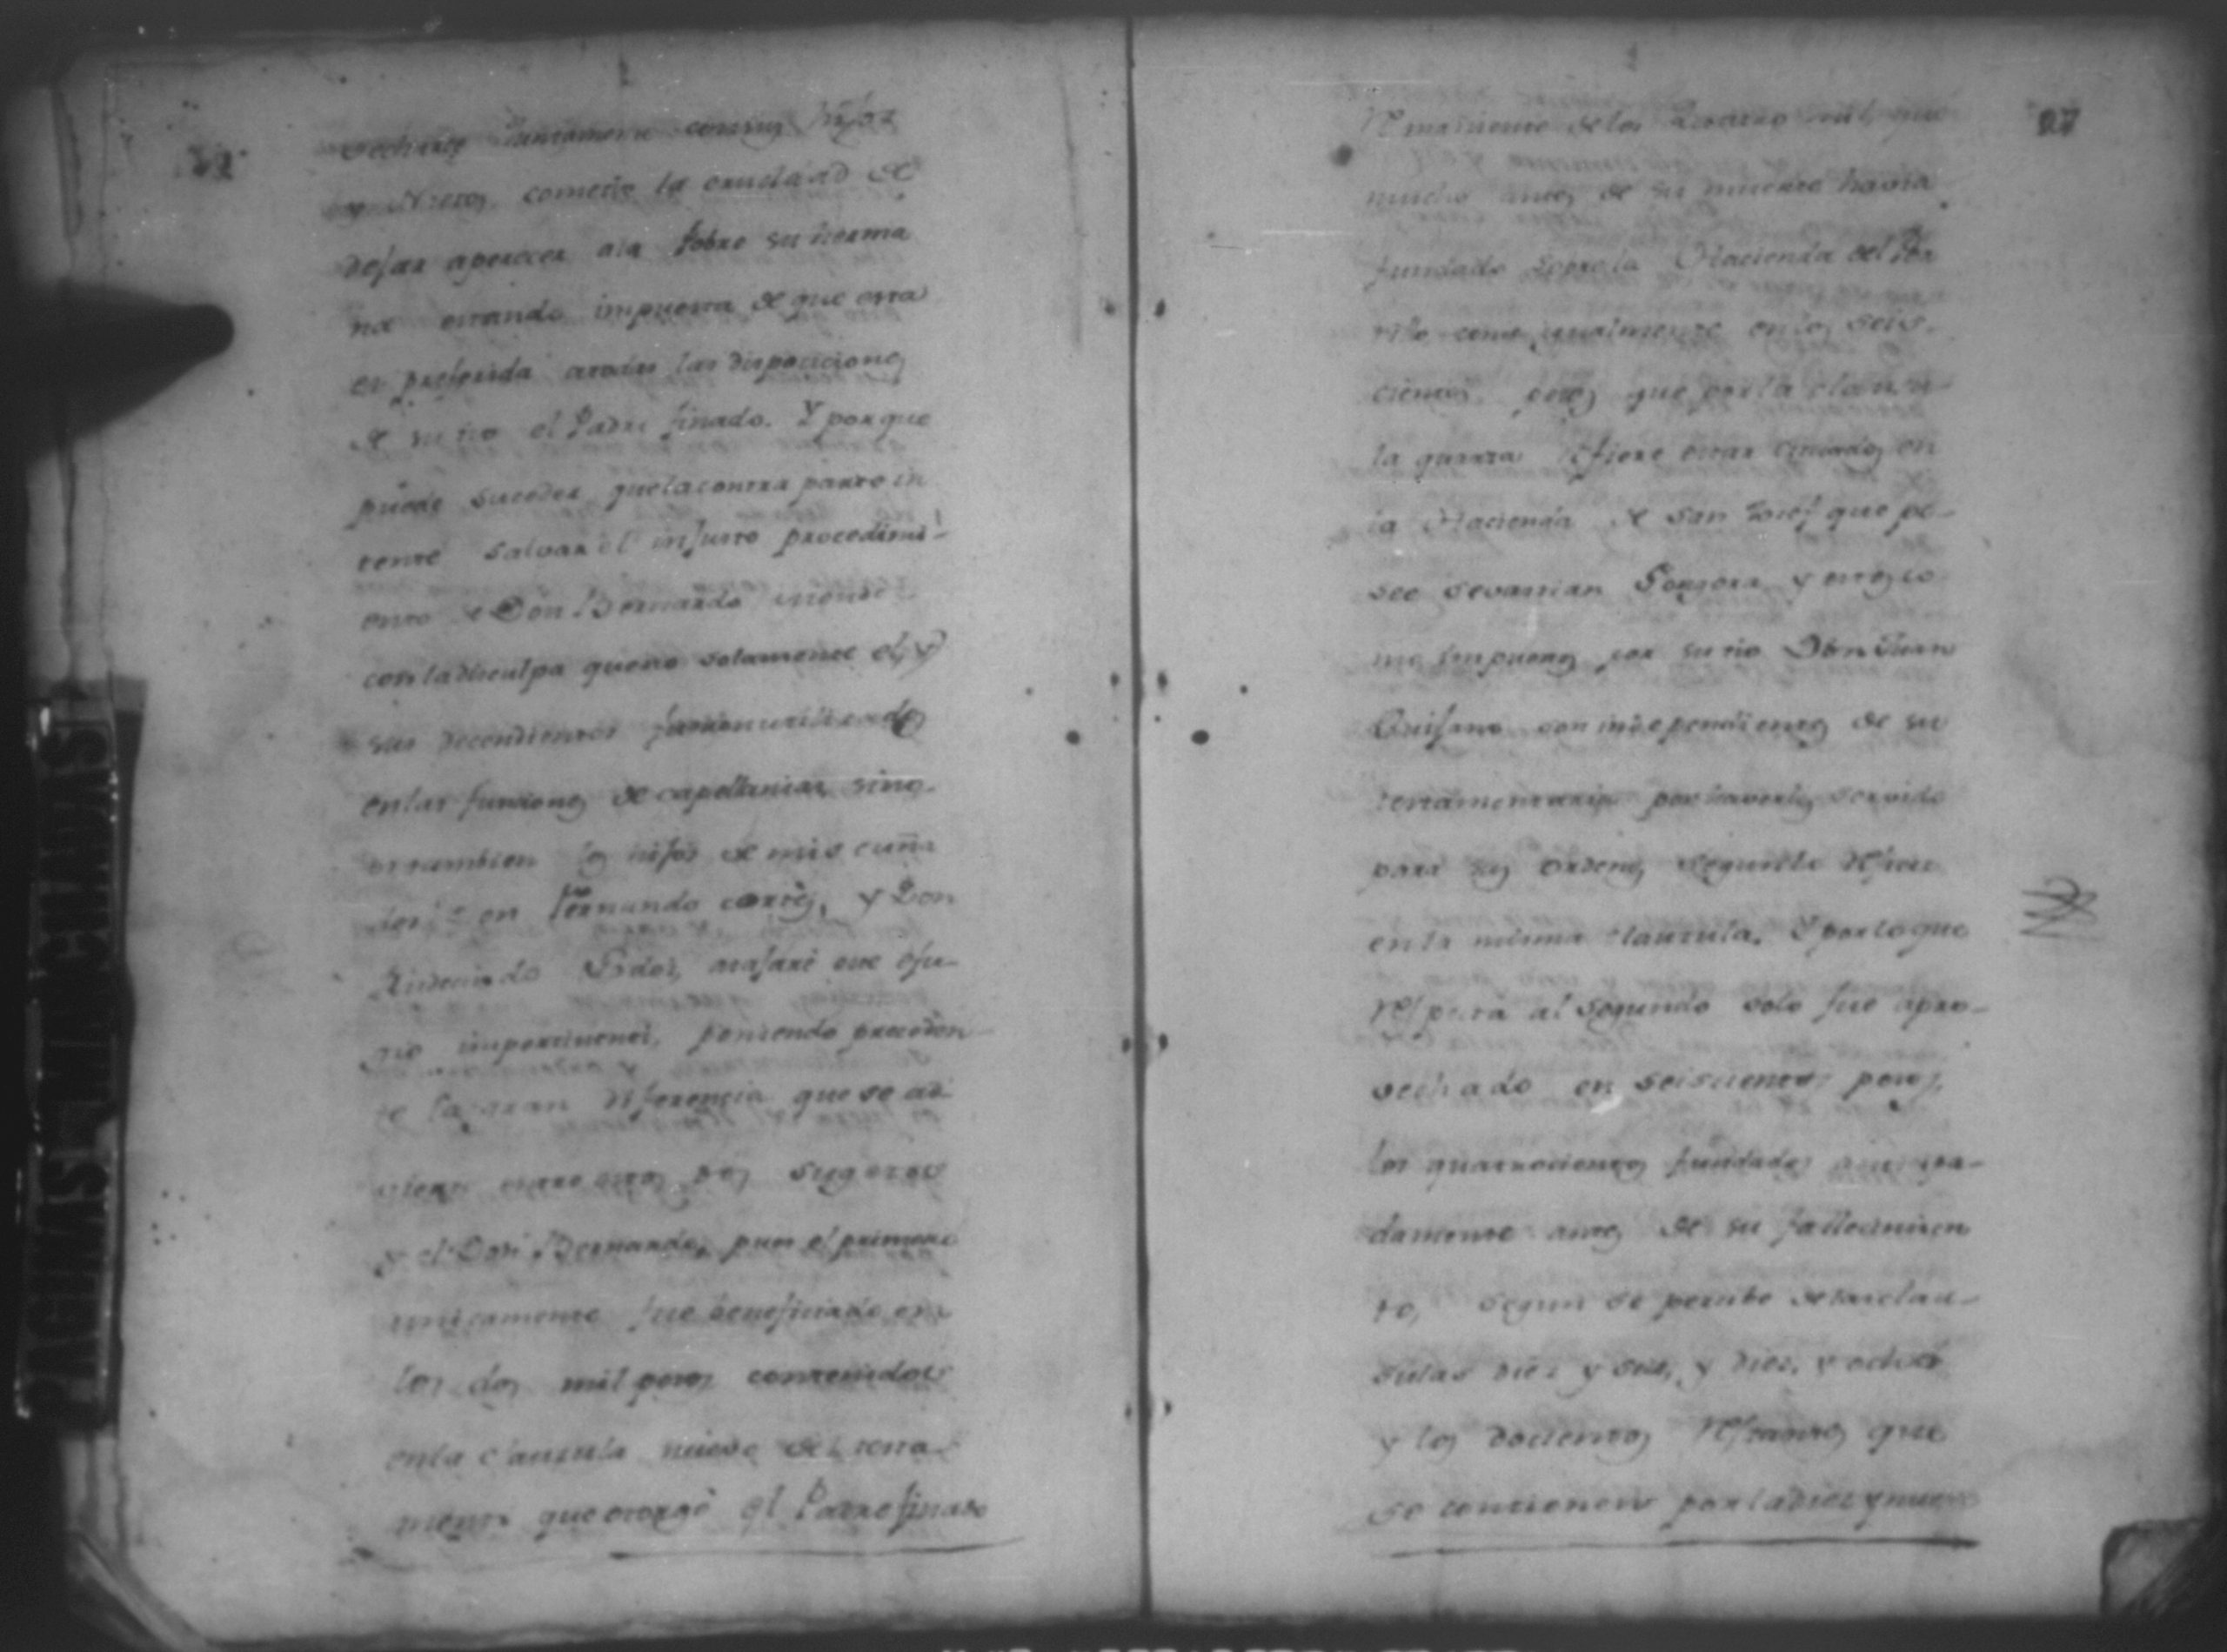 vecharse Juntamente con sus hijos
y Nietos, cometio la crueldad de
dejar aperecer ala Pobre su herma
na estando impuesta de que esta
es preferida atodas las disposiciones
de su tio el Padre finado. Y porque
puede suceder que la contra parte in
tente salvar el injusto procedimi-
ento de Don Bernardo
con la disculpa que no solamente el, y
sus decendientes fueron utilizados
en las funciones de capellanias, sino
es tambien los hijos de mis cuña
dos Don Fernando cortés, y Don
Gudos, atajaré ese efu-
gio impertinente, poniendo preceden
te la gran diferencia que se ad
vierte entre estos dos sugetos
y el Don Bernardo, pues el primero
unicamente fue beneficiado en
los dos mil pesos contenidos
en la clausula nueve del testa
mento que otorgó el Padre finado
27
Remanente de los quatro mil que
mucho antes de su muerte havia
fundado sobre la Hacienda del Po
trero como igualmente en los seis
cientos pesos que por la clausu
la quarta refiere estar situados en
la Hacienda de San Josef que po-
see Sevastian Gongora y estos co
mo impuestos por su tio Don Juan
Quijano son independientes de su
testamentaria por haverles servido
para sus ordenes segun lo refiere
en la misma clausula. Y por lo que
respecta al segundo solo fue apro-
vechado en seiscientos pesos,
los quatrocientos fundados anticipa-
damente antes de su fallecimien
to, segun se percibe de las clau-
sulas diez y seis, y diez, y ocho
y los docientos restantes que
se contienen por la diez y nueve